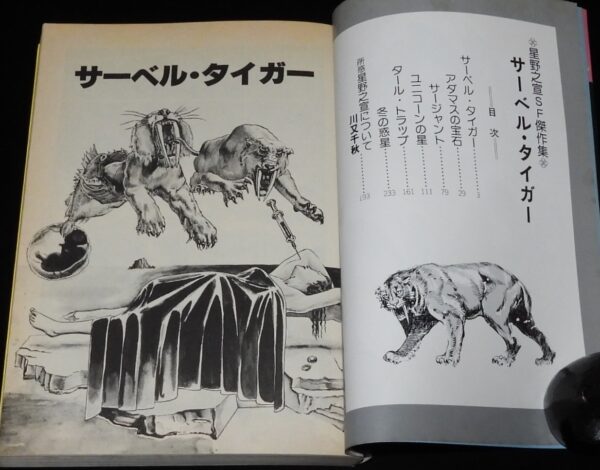 星野之宣SF傑作集
サーベル・タイガー
目次
サーベル・タイガー……3
アダマスの宝石……29
サージャント……79
ユニコーンの星……111
タール・トラップ……161
冬の惑星……233
星野之宣について
川又千秋……193
サーベル・タイガー